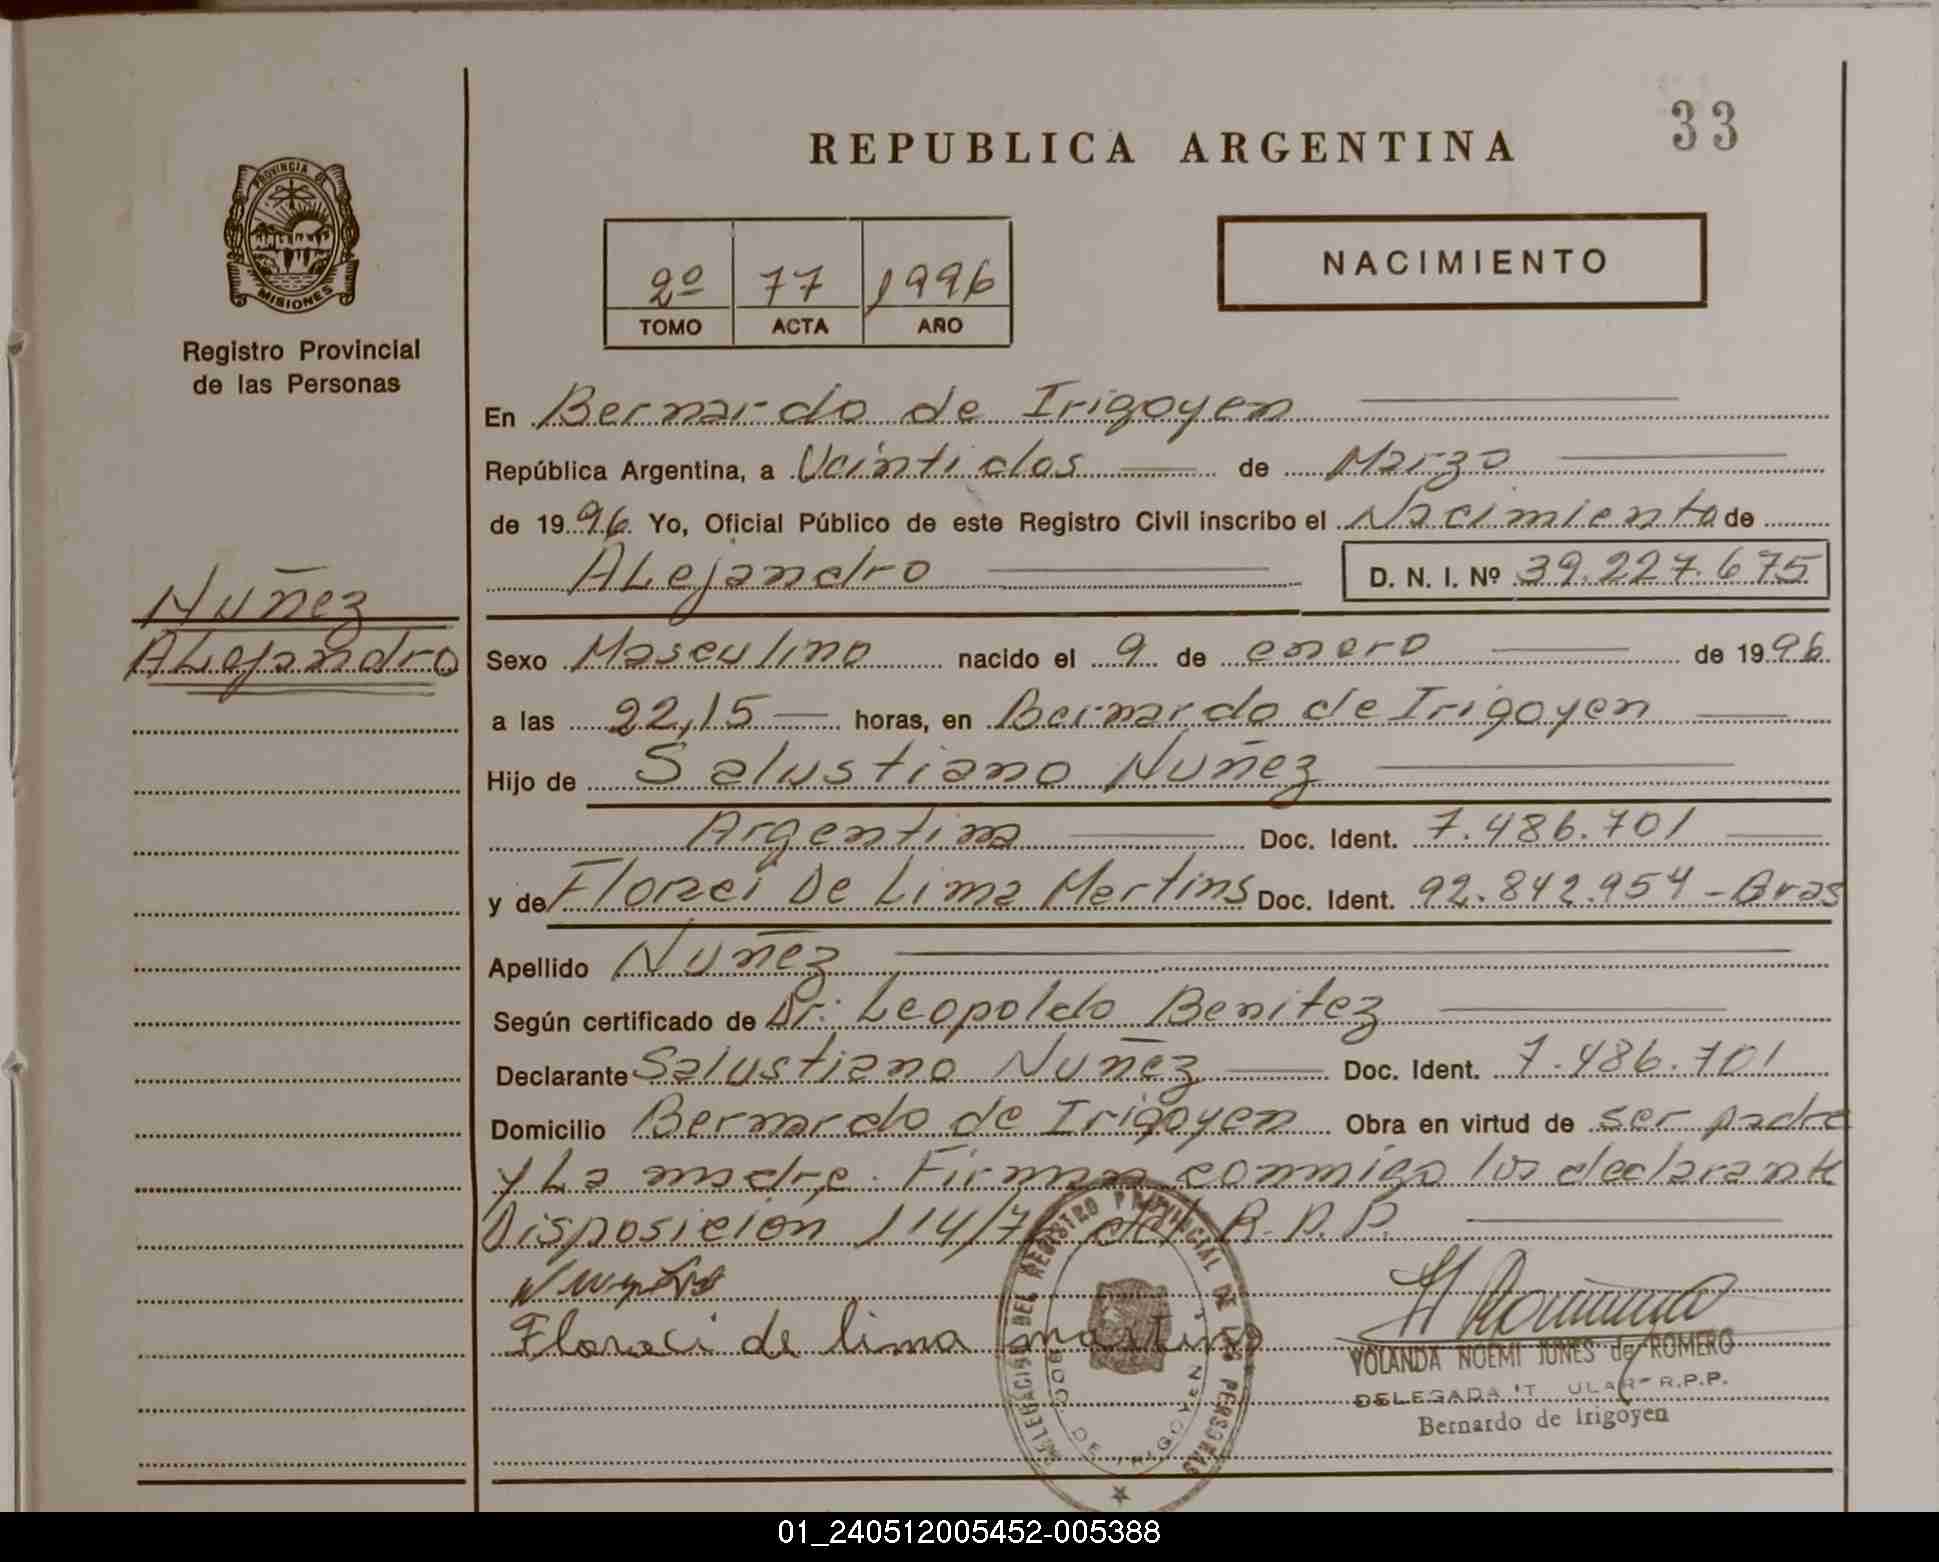 33
REPUBLICA ARGENTINA
PROVINCIA DE
MISIONES
Registro Provincial
de las Personas
2º 77 1996
TOMO ACTA AÑO
NACIMIENTO
En Bernardo de Irigoyen
República Argentina, a Veintidos de Marzo
de 1996 Yo, Oficial Público de este Registro Civil inscribo el Nacimiento de
Alejandro D. N. I. Nº 39.227.675
Nuñez
Alejandro
Sexo Masculino nacido el 9 de enero de 1996
a las 22,15 horas, en Bernardo de Irigoyen
Hijo de Salustiano Nuñez
Argentina Doc. Ident. 7.486.701
y de De Lima Mertins Doc. Ident. 92.842.954 - Bras
Apellido Nuñez
Según certificado de Dr. Leopoldo Benitez
Declarante Salustiano Nuñez Doc. Ident. 7.486.701
Domicilio Bernardo de Irigoyen Obra en virtud de ser padre
y La madre. Firman conmigo los declarante
Disposición del R.P.P.
de lima martins
DELEGACION DEL REGISTRO PROVINCIAL DE LAS PERSONAS
BDO. DE IRIGOYEN
YOLANDA NOEMI JUNES de ROMERO
DELEGADA TITULAR R.P.P.
Bernardo de Irigoyen
01_240512005452-005388